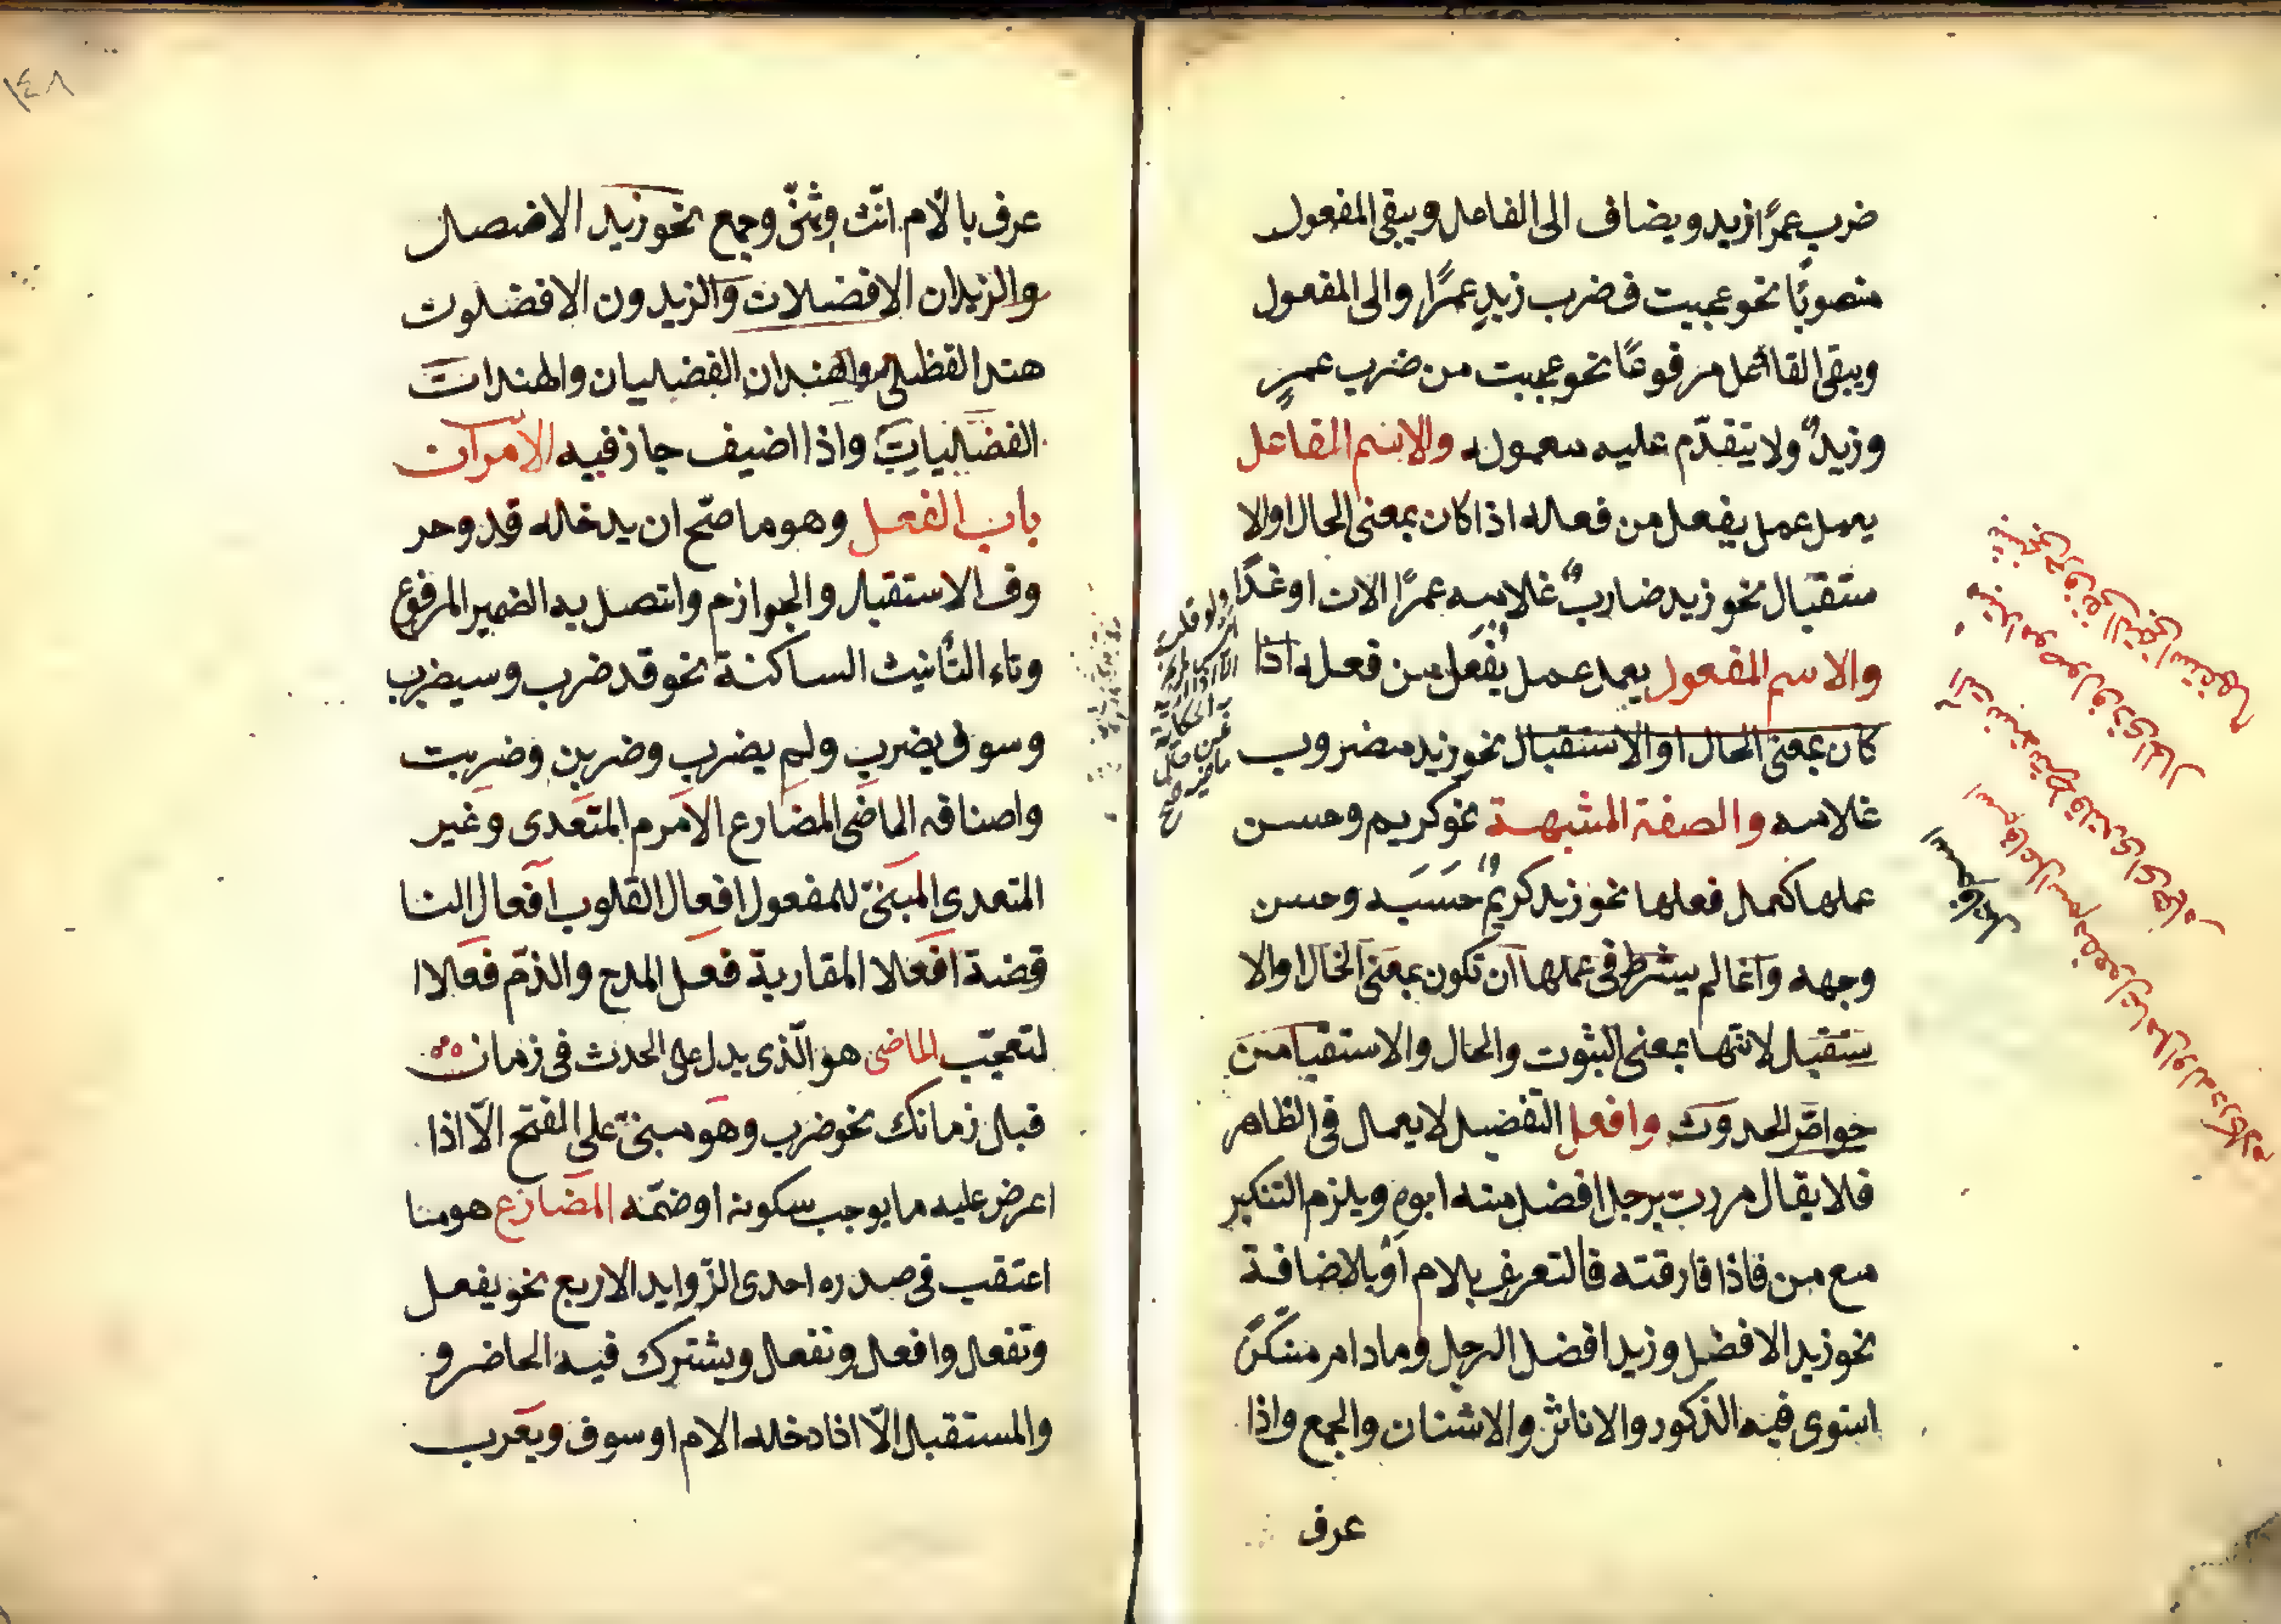 ضرب عمرًا زيد ويضاف الى الفاعل ويبقى المفعول
منصوبًا نحو عجبت فى ضرب زيدٍ عمرًا والى المفعول
ويبقى الفاعل مرفوعًا نحو عجبت من ضرب عمرٍ
وزيدٌ ولا يتقدّم عليه معموله والاسم الفاعل
يعمل عمل يفعل من فعله اذا كان بمعنى الحال اوالا
ستقبال نحو زيد ضاربٌ غلامه عمرًا الان اوغدًا
والاسم المفعول يعمل عمل يُفعَل من فعله اذا
كان بمعنى الحال اوالاستقبال نحو زيد مضروب
غلامه والصفة المشبهة نحو كريم وحسن
عملها كعمل فعلها نحو زيد كريمٌ حَسَبه وحسن
وجهه وانما لم يشترط فى عملها ان تكون بمعنى الحال اوالا
ستقبل لانّها بمعنى الثبوت والحال والاستقبا من
خواصّ الحدوث وافعل التفضيل لا يعمل فى الظاهر
فلا يقال مررت برجل افضل منه ابوه ويلزم التنكير
مع من فاذا فارقته فالتعريف بلام اوبالاضافة
نحو زيد الافضل وزيد افضل الرجل ومادام منكّرً
استوى فيه الذكور والاناث والاثنان والجمع واذا
عرف
١٤٨
عرف بالّام انّث وثنّى وجمع نحو زيد الافضل
والزيدان الافضلان والزيدون الافضلون
هند الفظلى والهندان الفضليان والهندات
الفضليات واذا اضيف جاز فيه الامران
باب الفعل وهو ما صحّ ان يدخله قد وحر
وف الاستقبال والجوازم واتصل به الضمير المرفوع
وتاء التأنيث الساكنة نحو قد ضرب وسيضرب
وسوف يضرب ولم يضرب وضربن وضربت
واصنافه الماضى المضارع الامر المتعدى وغير
المتعدى المبنىّ للمفعول افعال القلوب افعال النا
قضة افعلا المقاربة فعل المدح والذمّ فعلا ا
لتعجّب الماضى هو الّذى يدل على الحدث فى زمان
قبل زمانك نحو ضرب وهو مبنىّ على الفتح الّا اذا
اعرض عليه ما يوجب سكونه اوضمّه المضارع هو ما
اعتقب فى صدره احدى الزّوايد الاربع نحو يفعل
وتفعل وافعل ونفعل ويشترك فيه الحاضر و
والمستقبل الّا اذا دخله الام اوسوف ويعرب